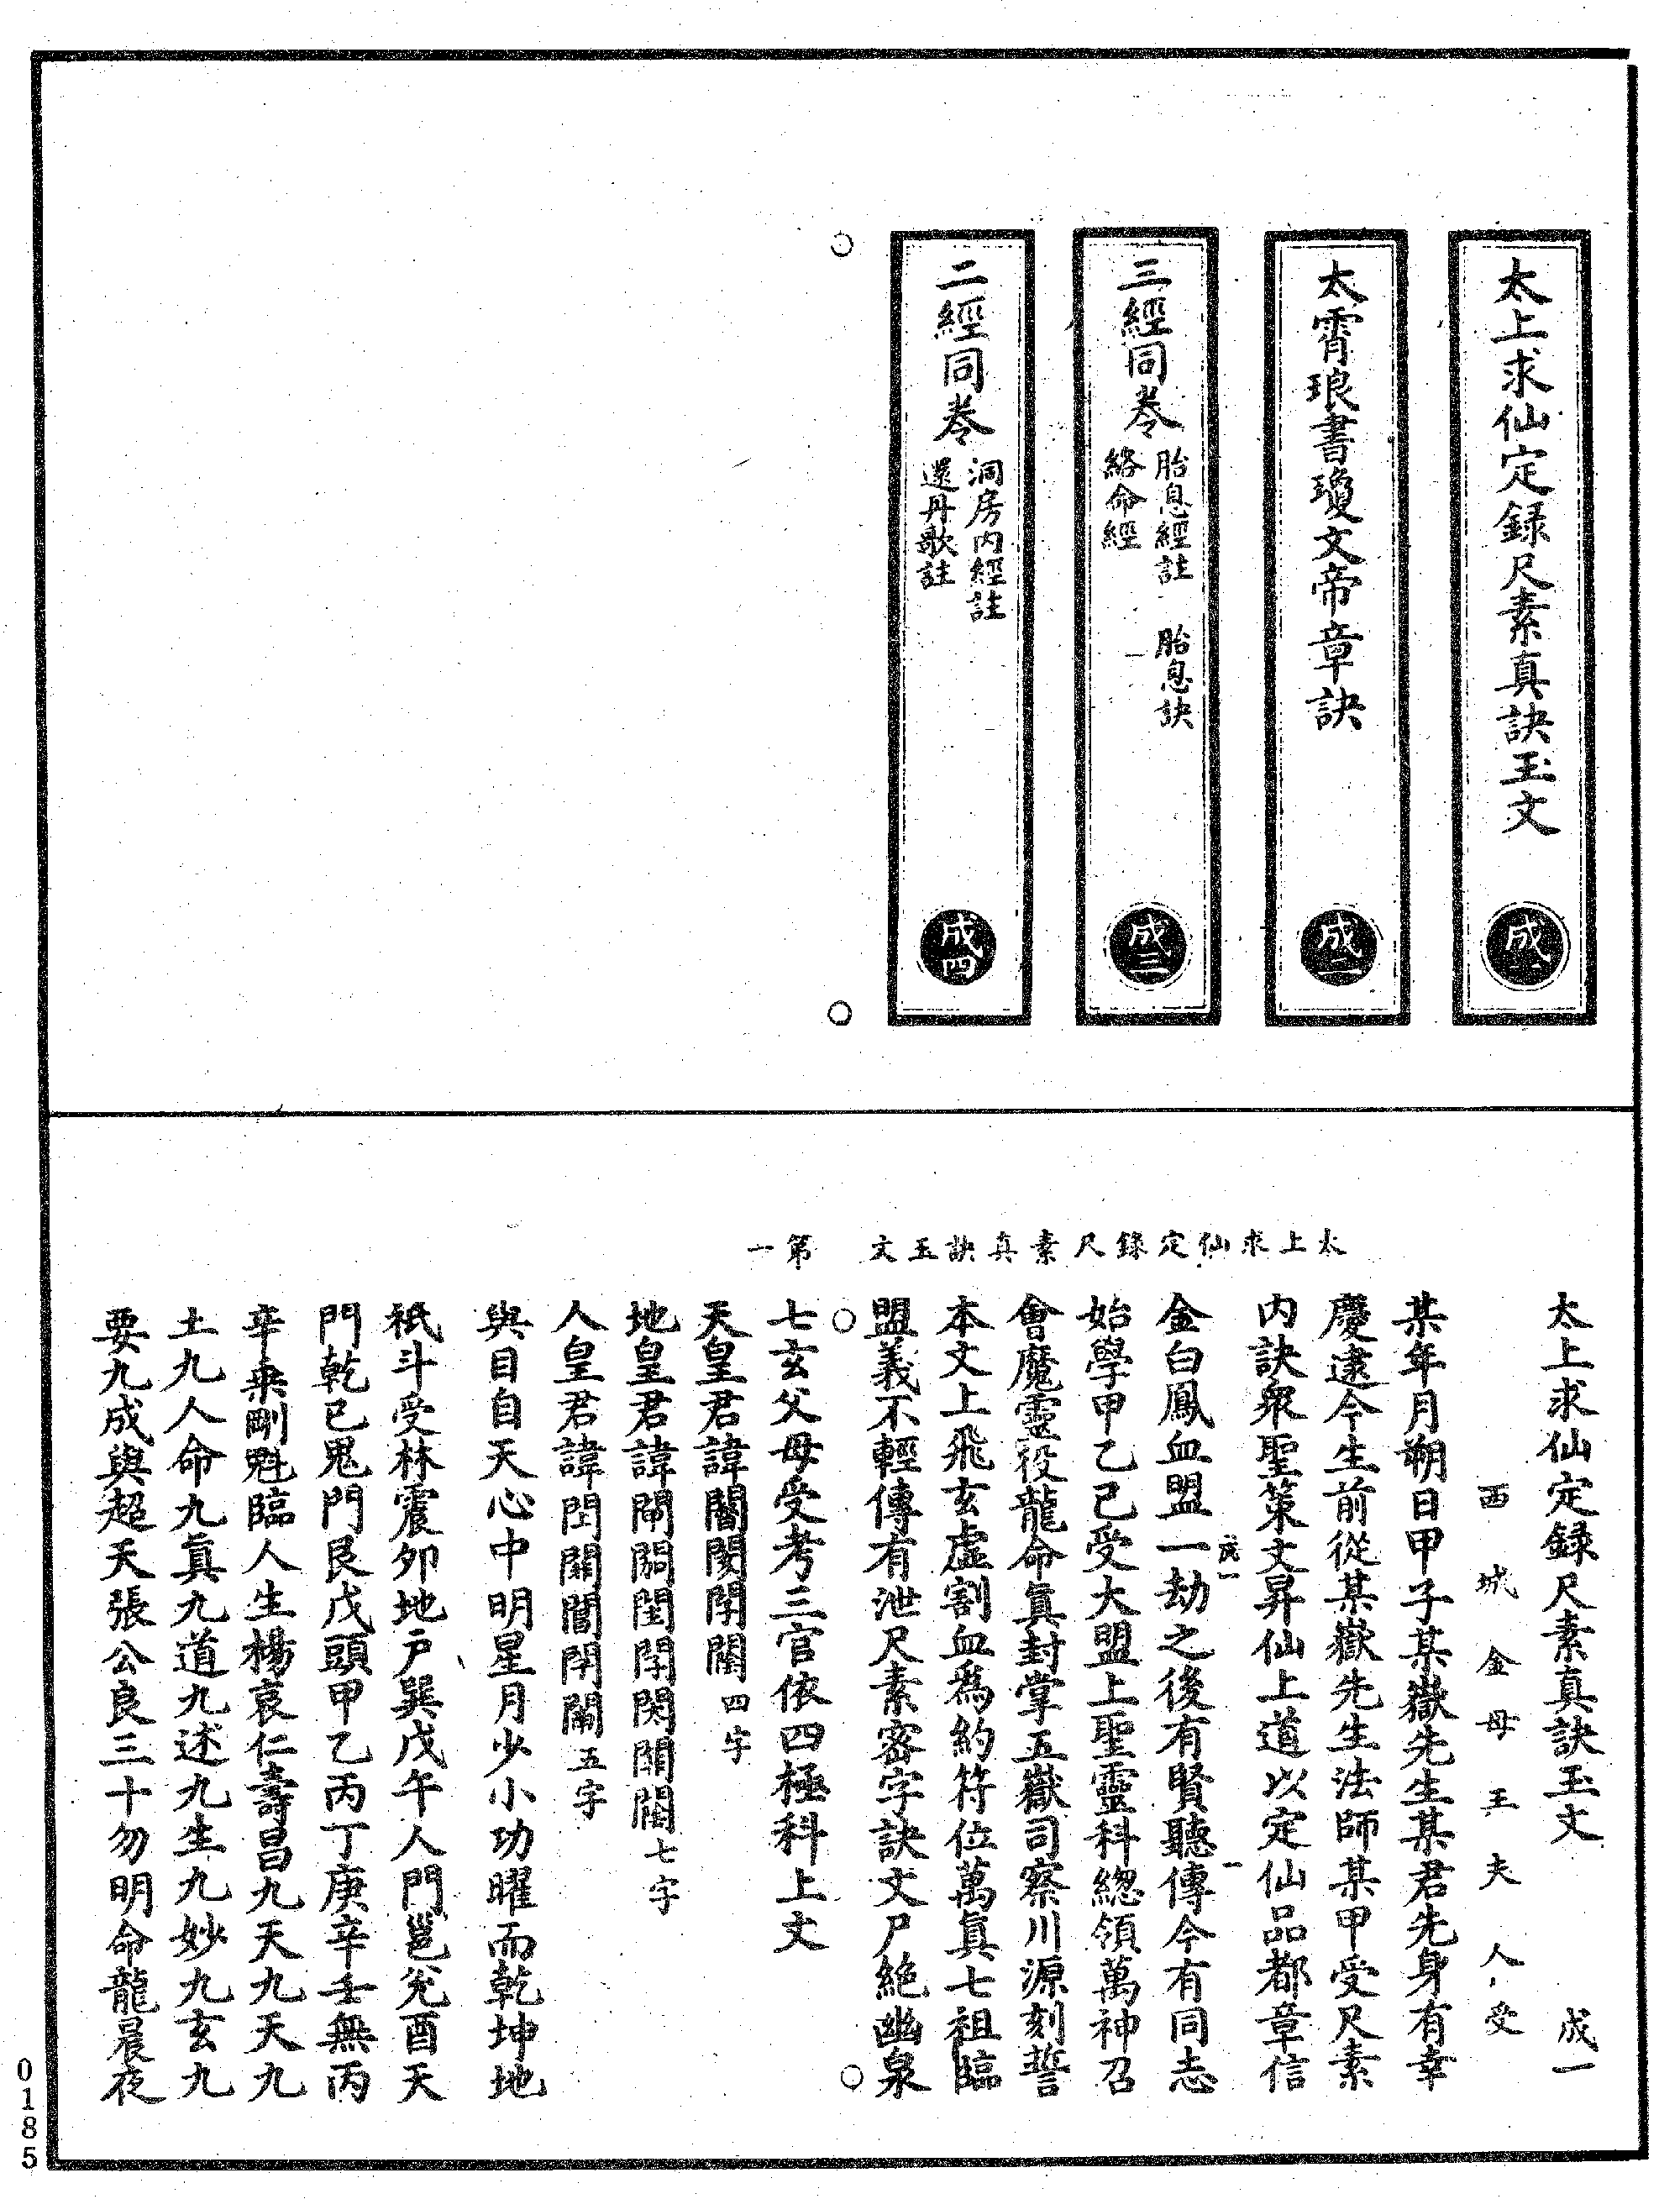 太上求仙定録尺素真訣玉文
成一
太霄琅書瓊文帝章訣
成二
三經同卷
胎息經註 胎息訣
絡命經
成三
二經同卷
洞房內經註
還丹歌註
成四
太上求仙定錄尺素真訣玉文 第一
太上求仙定録尺素真訣玉文 成一
西城金母王夫人受
某年月朔日甲子某嶽先生某君先身有幸
慶逮今生前從某嶽先生法師某甲受尺素
内訣衆聖策文昇仙上道以定仙品都章信
金白鳳血盟一劫之後有賢聽傳今有同志
始學甲乙己受大盟上聖靈科緫領萬神召
會魔靈役龍命眞封掌五嶽司察川源刻誓
本文上飛玄虛割血爲約符位萬眞七祖臨
盟義不輕傳有泄尺素密字訣文尸絶幽泉
七玄父母受考三官依四極科上文
天皇君諱 四字
地皇君諱 七字
人皇君諱 五字
與目自天心中明星月少小功曜而乾坤地
祇斗受林震卯地戶巽戊午人門邕兌酉天
門乾已鬼門艮戊頭甲乙丙丁庚辛壬無丙
辛乗剛魁臨人生楊哀仁壽昌九天九天九
土九人命九眞九道九述九生九妙九玄九
要九成與超天張公良三十勿明命龍晨夜
0185